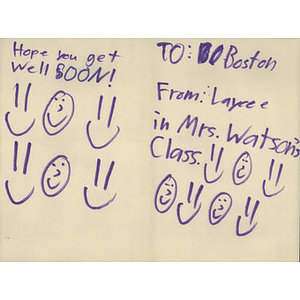 Hope you get
Well SOON!
TO: Boston
From: Laycee
in Mrs. Watson's
Class.